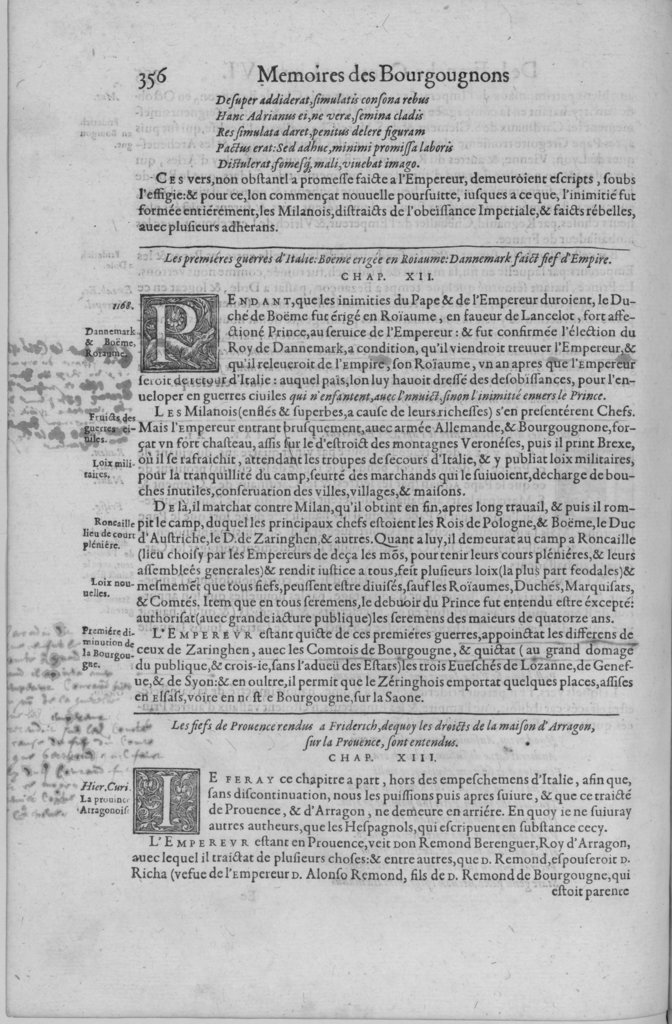 356 Memoires des Bourgougnons
Desuper addiderat, simulatis consona rebus
Hanc Adrianus ei, ne vera, semina cladis
Res simulata daret, penitus delere figuram
Pactus erat: Sed adhuc, minimi promissa laboris
Distulerat, fomesq́; mali, viuebat imago.
CES vers, non obstant la promesse faicte a l'Empereur, demeuroient escripts, soubs
l'effigie: & pour ce, lon commençat nouuelle poursuitte, iusques a ce que, l'inimitié fut
formée entiérement, les Milanois, distraicts de l'obeissance Imperiale, & faicts rébelles,
auec plusieurs adherans.
Les premiéres guerres d'Italie: Boëme erigée en Roiaume: Dannemark faict fief d'Empire.
CHAP. XII.
1168.
PENDANT, que les inimities du Pape & de l'Empereur duroient, le Du-
ché de Boëme fut érigé en Roïaume, en faueur de Lancelot, fort affe-
ctioné Prince, au seruice de l'Empereur: & fut confirmée l'élection du
Dannemark
& Boëme,
Roiaume.
Roy de Dannemark, a condition, qu'il viendroit treuuer l'Empereur, &
qu'il releueroit de l'Empire, son Roïaume, vn an apres que l'Empereur
seroit de retour d'Italie: auquel païs, lon luy hauoit dressé des desobïssances, pour l'en-
ueloper en guerres ciuiles qui n'enfantent, auec l'ennuict, sinon l'inimitié enuers le Prince.
LES Milanois (enflés & superbes, a cause de leurs richesses) s'en presentérent Chefs.
Fruicts des
guerres ci-
uiles.
Mais l'Empereur entrant brusquement, auec armée Allemande, & Bourgougnone, for-
çat vn fort chasteau, assis sur le d'estroict des montagnes Veronéses, puis il print Brexe,
où il se rafraichit, attendant les troupes de secours d'Italie, & y publiat loix militaires,
Loix mili-
taires.
pour la tranquillité du camp, seurté des marchands qui le suiuoient, decharge de bou-
ches inutiles, conseruation des villes, villages, & maisons.
De là, il marchat contre Milan, qu'il obtint en fin, apres long trauail, & puis il rom-
Roncaille
lieu de court
pléniére.
pit le camp, duquel les principaux chefs estoient les Rois de Pologne, & Boëme, le Duc
d'Austriche, le D. de Zaringhen, & autres. Quant a luy, il demeurat au camp a Roncaille
(lieu choisy par les Empereurs de deça les mõs, pour tenir leurs cours pléniéres, & leurs
assembleés generales) & rendit iustice a tous, feit plusieurs loix (la plus part feodales) &
Loix nou-
uelles.
mesmemẽt que tous fiefs, peussent estre diuisés, sauf les Roïaumes, Duchés, Marquisats,
& Comtés. Item que en tous seremens, le debuoir du Prince fut entendu estre éxcepté:
authorisat (auec grande iacture publique) les seremens des maieurs de quatorze ans.
Premiére di-
minution de
la Bourgou-
gne.
L'EMPEREVR estant quicte de ces premiéres guerres, appoinctat les differens de
ceux de Zaringhen, auec les Comtois de Bourgougne, & quictat (au grand domage
du publique, & crois-ie, sans l'adueü des Estats) les trois Eueschés de Lozanne, de Genef-
ue, & de Syon: & en oultre, il permit que le Zéringhois emportat quelques places, assises
en Elsass, voire en nostre Bourgougne, sur la Saone.
Les fiefs de Prouence rendus a Friderich, dequoy les droicts de la maison d'Arragon,
sur la Prouence, sont entendus.
CHAP. XIII.
Hier. Curi.
La prouince
Arragonoise
IE FERAY ce chapitre a part, hors des empeschemens d'Italie, afin que,
sans discontinuation, nous les puissions puis apres suiure, & que ce traicté
de Prouence, & d'Arragon, ne demeure en arriére. En quoy ie ne suiuray
autres autheurs, que les Hespagnols, qui escripuent en substance cecy.
L'EMPEREVR estant en Prouence, veit DON Remond Berenguer, Roy d'Arragon,
auec lequel il traictat de plusieurs choses: & entre autres, que D. Remond, espouseroit D.
Richa (vefue de l'Empereur D. Alonso Remond, fils de D. Remond de Bourgougne, qui
estoit parente